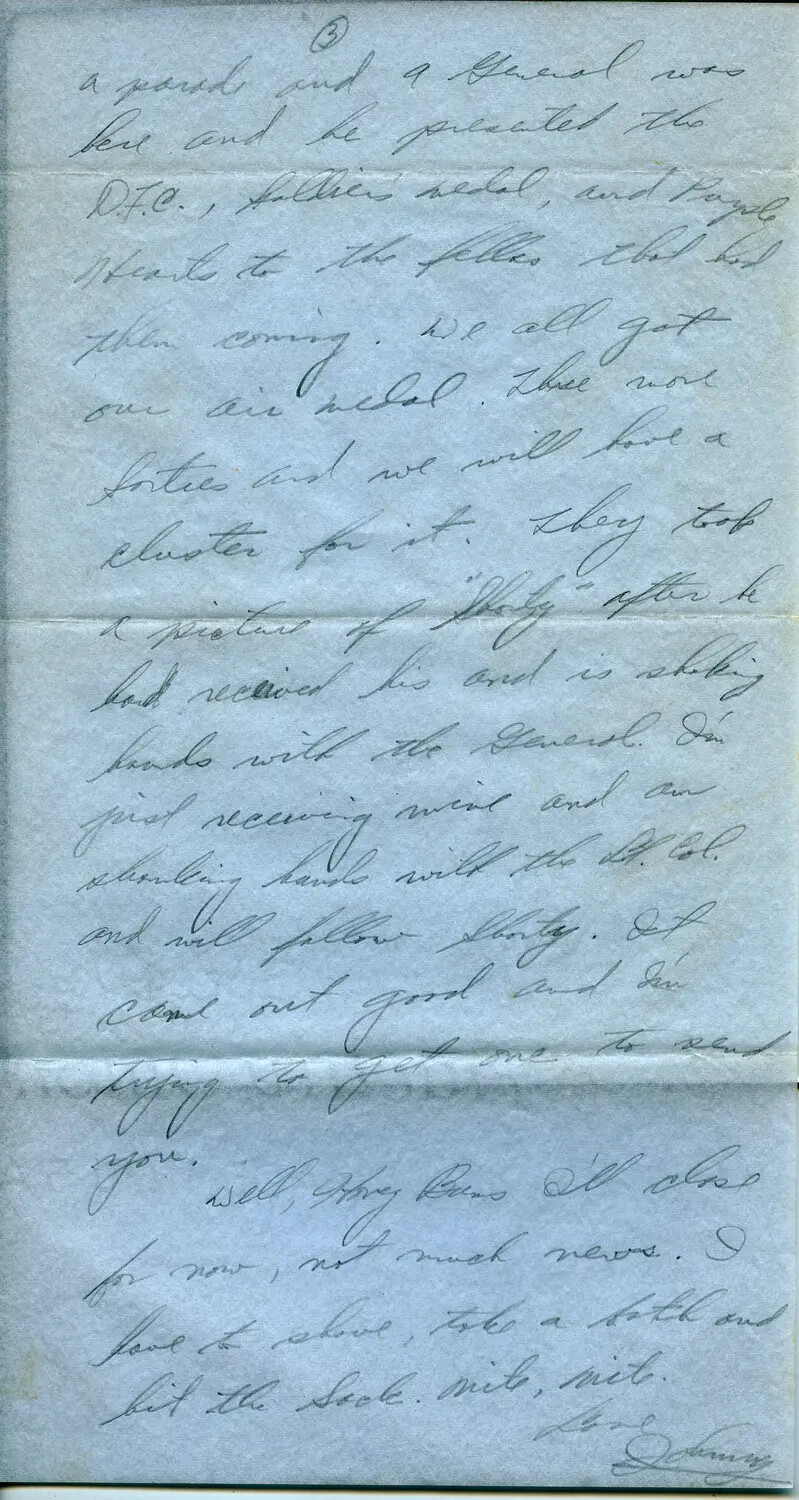 3
a parade and a General was
here and he presented the
D.F.C., Soldier's medal, and Purple
Hearts to the fellas that had
them coming. We all got
our air medal. Three more
sorties and we will have a
cluster for it. They took
a picture of "Shorty" after he
had received his and is shaking
hands with the General. I'm
just receiving mine and am
shanking hands with the Lt. Col.
and will follow Shorty. It
came out good and I'm
trying to get one to send
you.
Well, Honey Buns I'll close
for now, not much news. I
have to shave, take a bath and
hit the sack. Nite, nite.
Love
Johnny